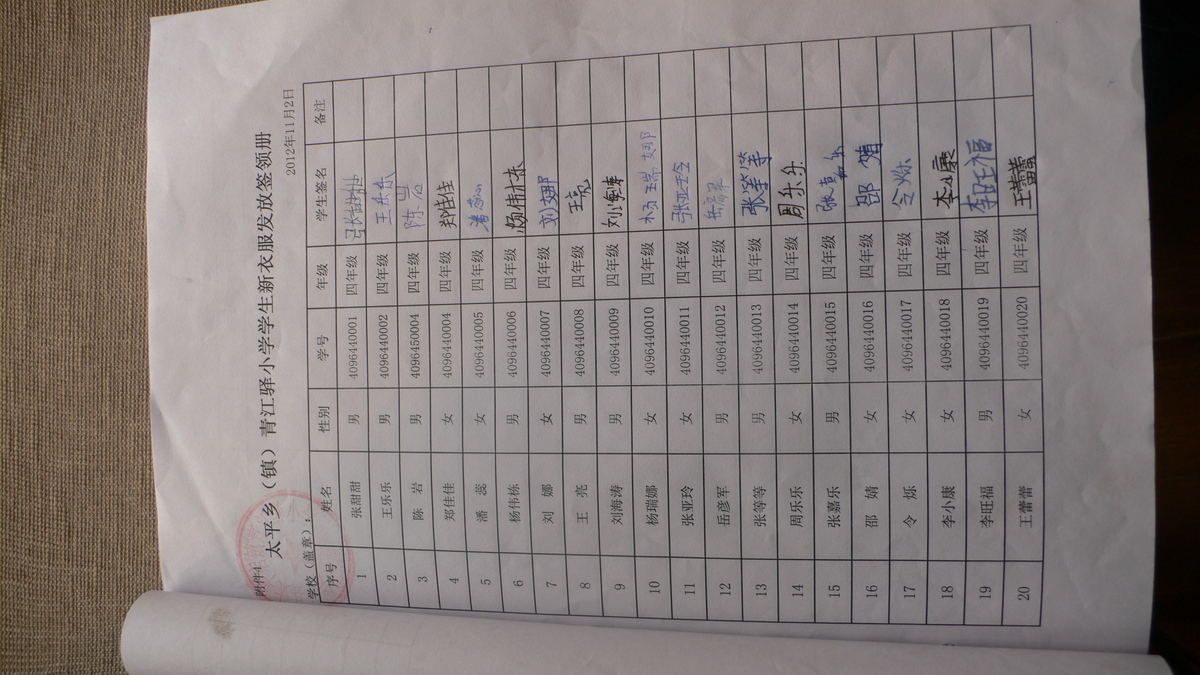 附件4
太平乡（镇）青江驿小学学生新衣服发放签领册
学校（盖章）： 2012年11月2日
序号 姓名 性别 学号 年级 学生签名 备注
1 张甜甜 男 4096440001 四年级 张甜甜
2 王乐乐 男 4096440002 四年级 王乐乐
3 陈岩 男 4096450004 四年级 陈岩
4 郑佳佳 女 4096440004 四年级 郑佳佳
5 潘蕊 女 4096440005 四年级 潘蕊
6 杨伟栋 男 4096440006 四年级 杨伟栋
7 刘娜 女 4096440007 四年级 刘娜
8 王亮 男 4096440008 四年级 王亮
9 刘海涛 男 4096440009 四年级 刘海涛
10 杨瑞娜 女 4096440010 四年级 杨瑞娜
11 张亚玲 女 4096440011 四年级 张亚玲
12 岳彦军 男 4096440012 四年级
13 张等等 男 4096440013 四年级 张等等
14 周乐乐 女 4096440014 四年级 周乐乐
15 张嘉乐 男 4096440015 四年级 张嘉乐
16 邵婧 女 4096440016 四年级 邵婧
17 令烁 女 4096440017 四年级 令烁
18 李小康 女 4096440018 四年级 李小康
19 李旺福 男 4096440019 四年级 李旺福
20 王蕾蕾 女 4096440020 四年级 王蕾蕾